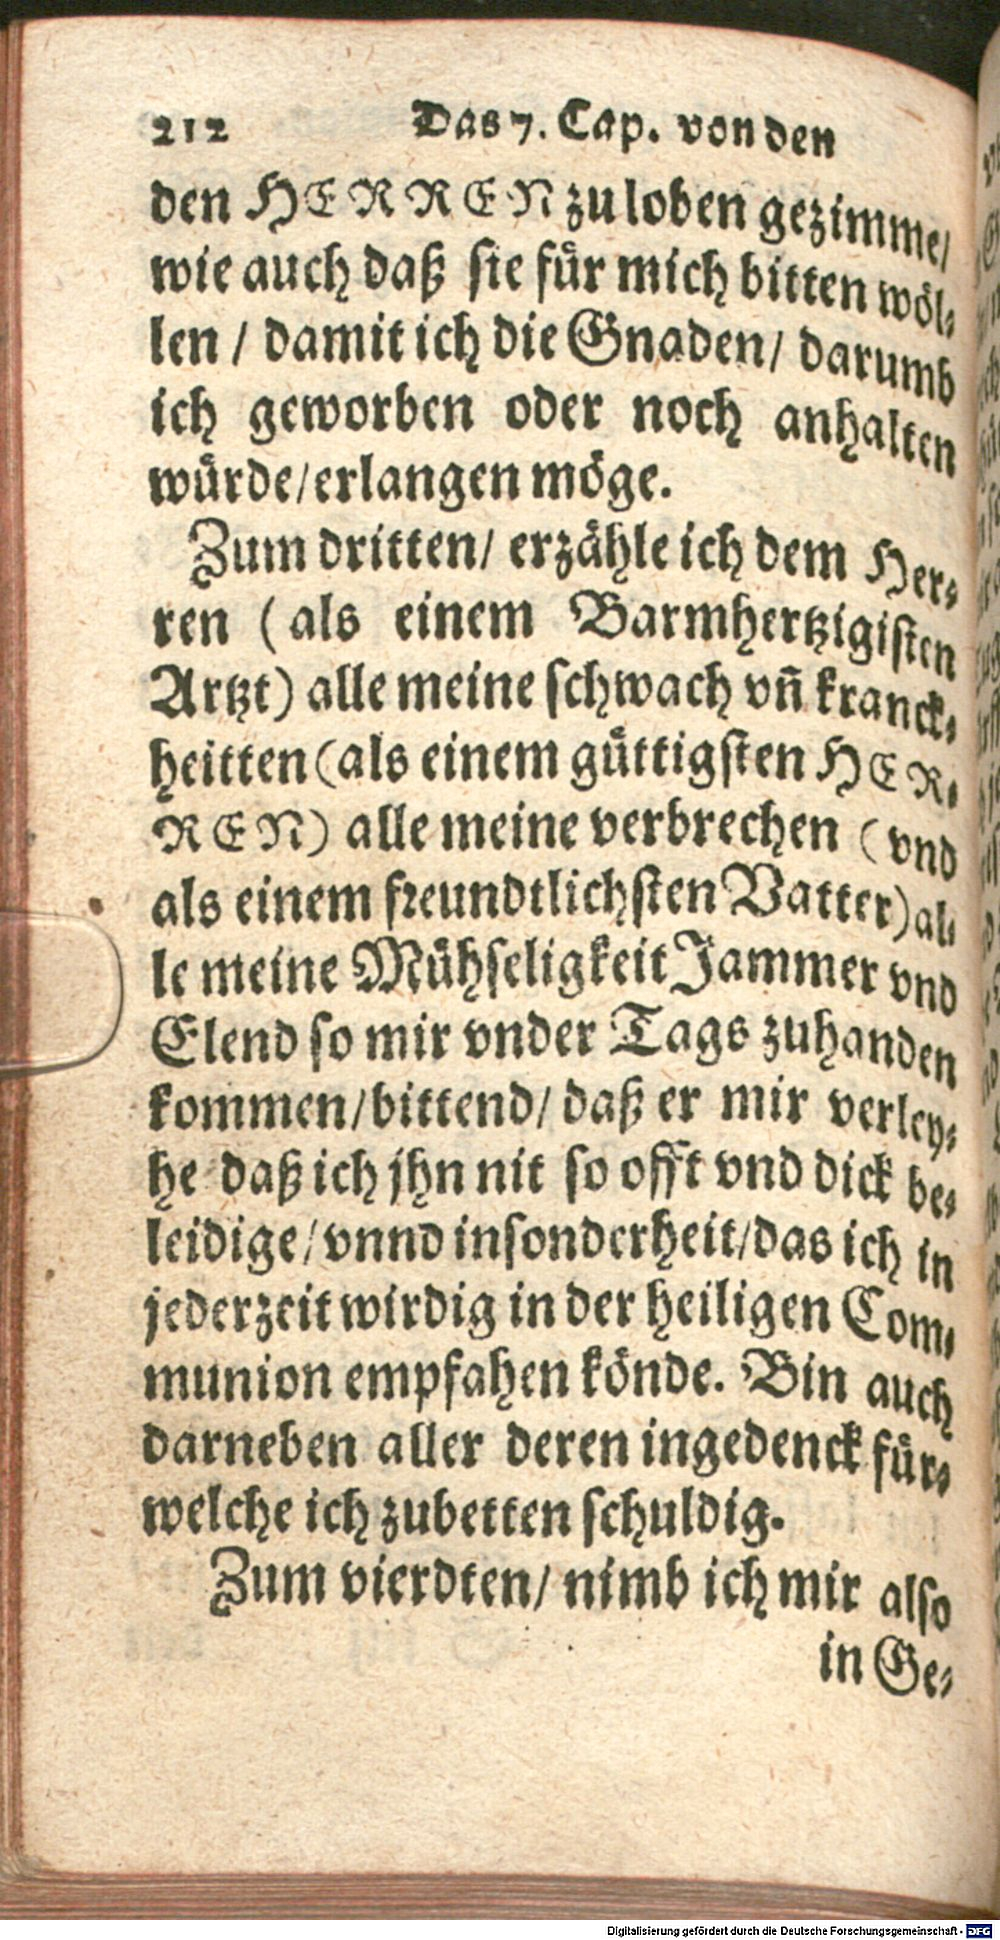 212 Das 7. Cap. von den
den HERREN zu loben gezimme/
wie auch daß sie für mich bitten wöl⸗
len / damit ich die Gnaden / darumb
ich geworben oder noch anhalten
würde / erlangen möge.
Zum dritten / erzähle ich dem Her⸗
ren (als einem Barmhertzigisten
Artzt) alle meine schwach vñ kranck⸗
heitten (als einem güttigsten HER⸗
REN) alle meine verbrechen (vnd
als einem freundtlichsten Vatter) al⸗
le meine Mühseligkeit Jammer vnd
Elend so mir vnder Tags zuhanden
kommen / bittend / daß er mir verley⸗
he daß ich jhn nit so offt vnd dick be⸗
leidige / vnnd insonderheit / das ich in
jederzeit wirdig in der heiligen Com⸗
munion empfahen könde. Bin auch
darneben aller deren ingedenck für⸗
welche ich zubetten schuldig.
Zum vierdten / nimb ich mir also
in Ge⸗
Digitalisierung gefördert durch die Deutsche Forschungsgemeinschaft - DFG